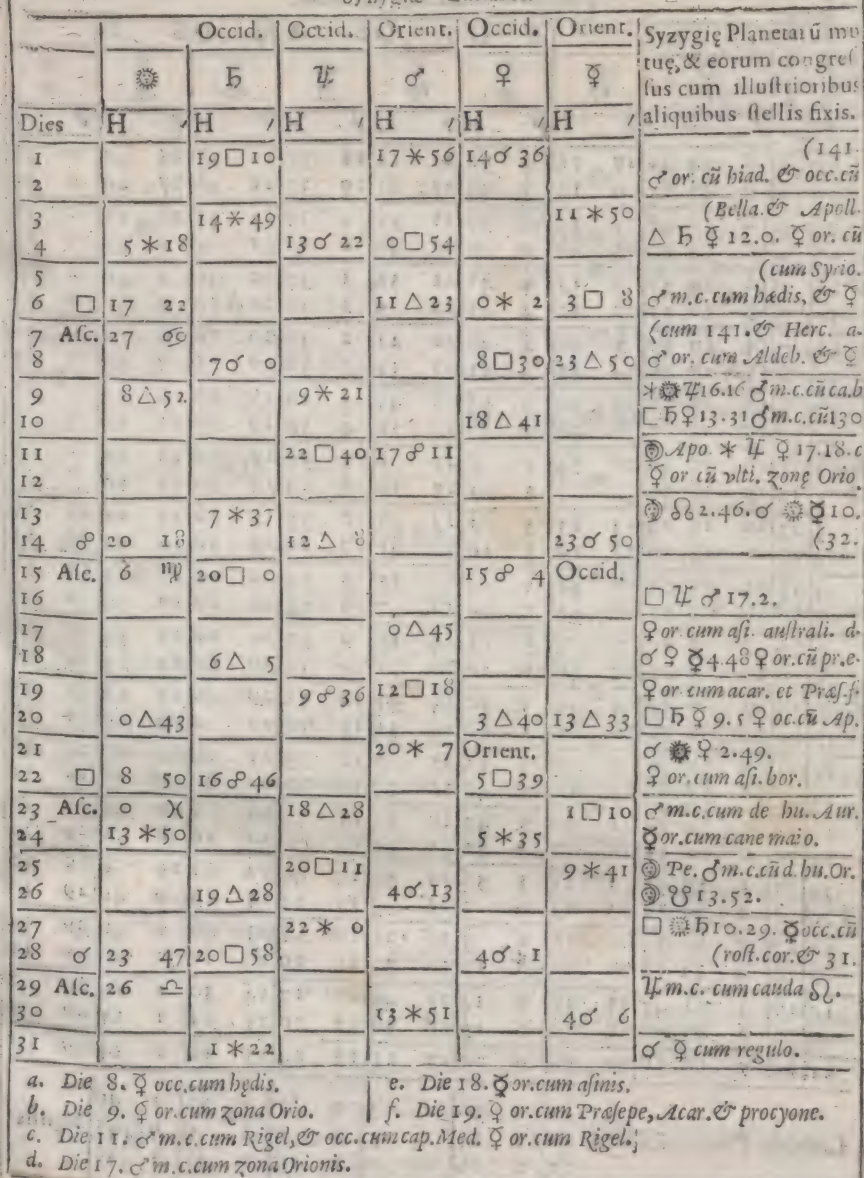 Occid. Occid. Orient. Occid. Orient. Syzygię Planetarū mu
☉ ♄ ♃ ♂ ♀ ☿ tuę, & eorum congreſ
ſus cum illuſtrioribus
Dies H ′ H ′ H ′ H ′ H ′ H ′ aliquibus ſtellis fixis.
1 19□10 17✶56 14☌36 (141.
2 ♂ or. cū hiad. & occ.cū
3 14✶49 11✶50 (Bella. & Apoll.
4 5✶18 13☌22 0□54 △ ♄ ☿ 12.0. ☿ or. cū
5 (cum Syrio.
6 □ 17 22 11△23 0✶ 2 3□ 8 ♂ m.c. cum hædis, & ☿
7 Aſc. 27 ♋ (cum 141. & Herc. a.
8 7☌ 0 8□30 23△50 ♂ or. cum Aldeb. & ☿
9 8△52 9✶21 ✶☉♃16.16 ♂m.c.cū ca.b
10 18△41 □♄♀13.31♂m.c.cū130
11 22□40 17☍11 ☽Apo. ✶ ♃ ♀ 17.18.c
12 ☿ or cū vlti. zonę Orio.
13 7✶37 ☽ ☊ 2.46. ☌ ☉☿10.
14 ☍ 20 18 12△ 8 23☌50 (32.
15 Aſc. 6 ♍ 20□ 0 15☍ 4 Occid.
16 □ ♃ ♂ 17.2.
17 0△45 ♀ or. cum aſi. auſtrali. d.
18 6△ 5 ☌ ♀ ☿4.48 ♀ or.cū pr.e.
19 9☍36 12□18 ♀ or. cum acar. et Præſ.f.
20 0△43 3△40 13△33 □ ♄ ☿ 9.5 ♀ oc.cū Ap.
21 20✶ 7 Orient. ☌ ☉ ♀ 2.49.
22 □ 8 50 16☍46 5□39 ♀ or. cum aſi. bor.
23 Aſc. 0 ♓ 18△28 1□10 ♂ m.c.cum de hu. Aur.
24 13✶50 5✶35 ☿ or.cum cane maio.
25 20□11 9✶41 ☽ Pe. ♂ m.c.cū d. hu. Or.
26 19△28 4☌13 ☽ ☋ 13.52.
27 22✶ 0 □ ☉ ♄10.29. ☿occ.cū
28 ☌ 23 47 20□58 4☌ 1 (roſt.cor. & 31.
29 Aſc. 26 ♎ ♃ m.c. cum cauda ♌.
30 13✶51 4☌ 6
31 1✶22 ☌ ☿ cum regulo.
a. Die 8. ☿ occ.cum hędis.
b. Die 9. ☿ or.cum zona Orio.
c. Die 11. ♂ m.c.cum Rigel, & occ.cum cap.Med. ☿ or.cum Rigel.
d. Die 17. ♂ m.c.cum zona Orionis.
e. Die 18. ☿ or.cum aſinis.
f. Die 19. ♀ or.cum Præſepe, Acar. & procyone.